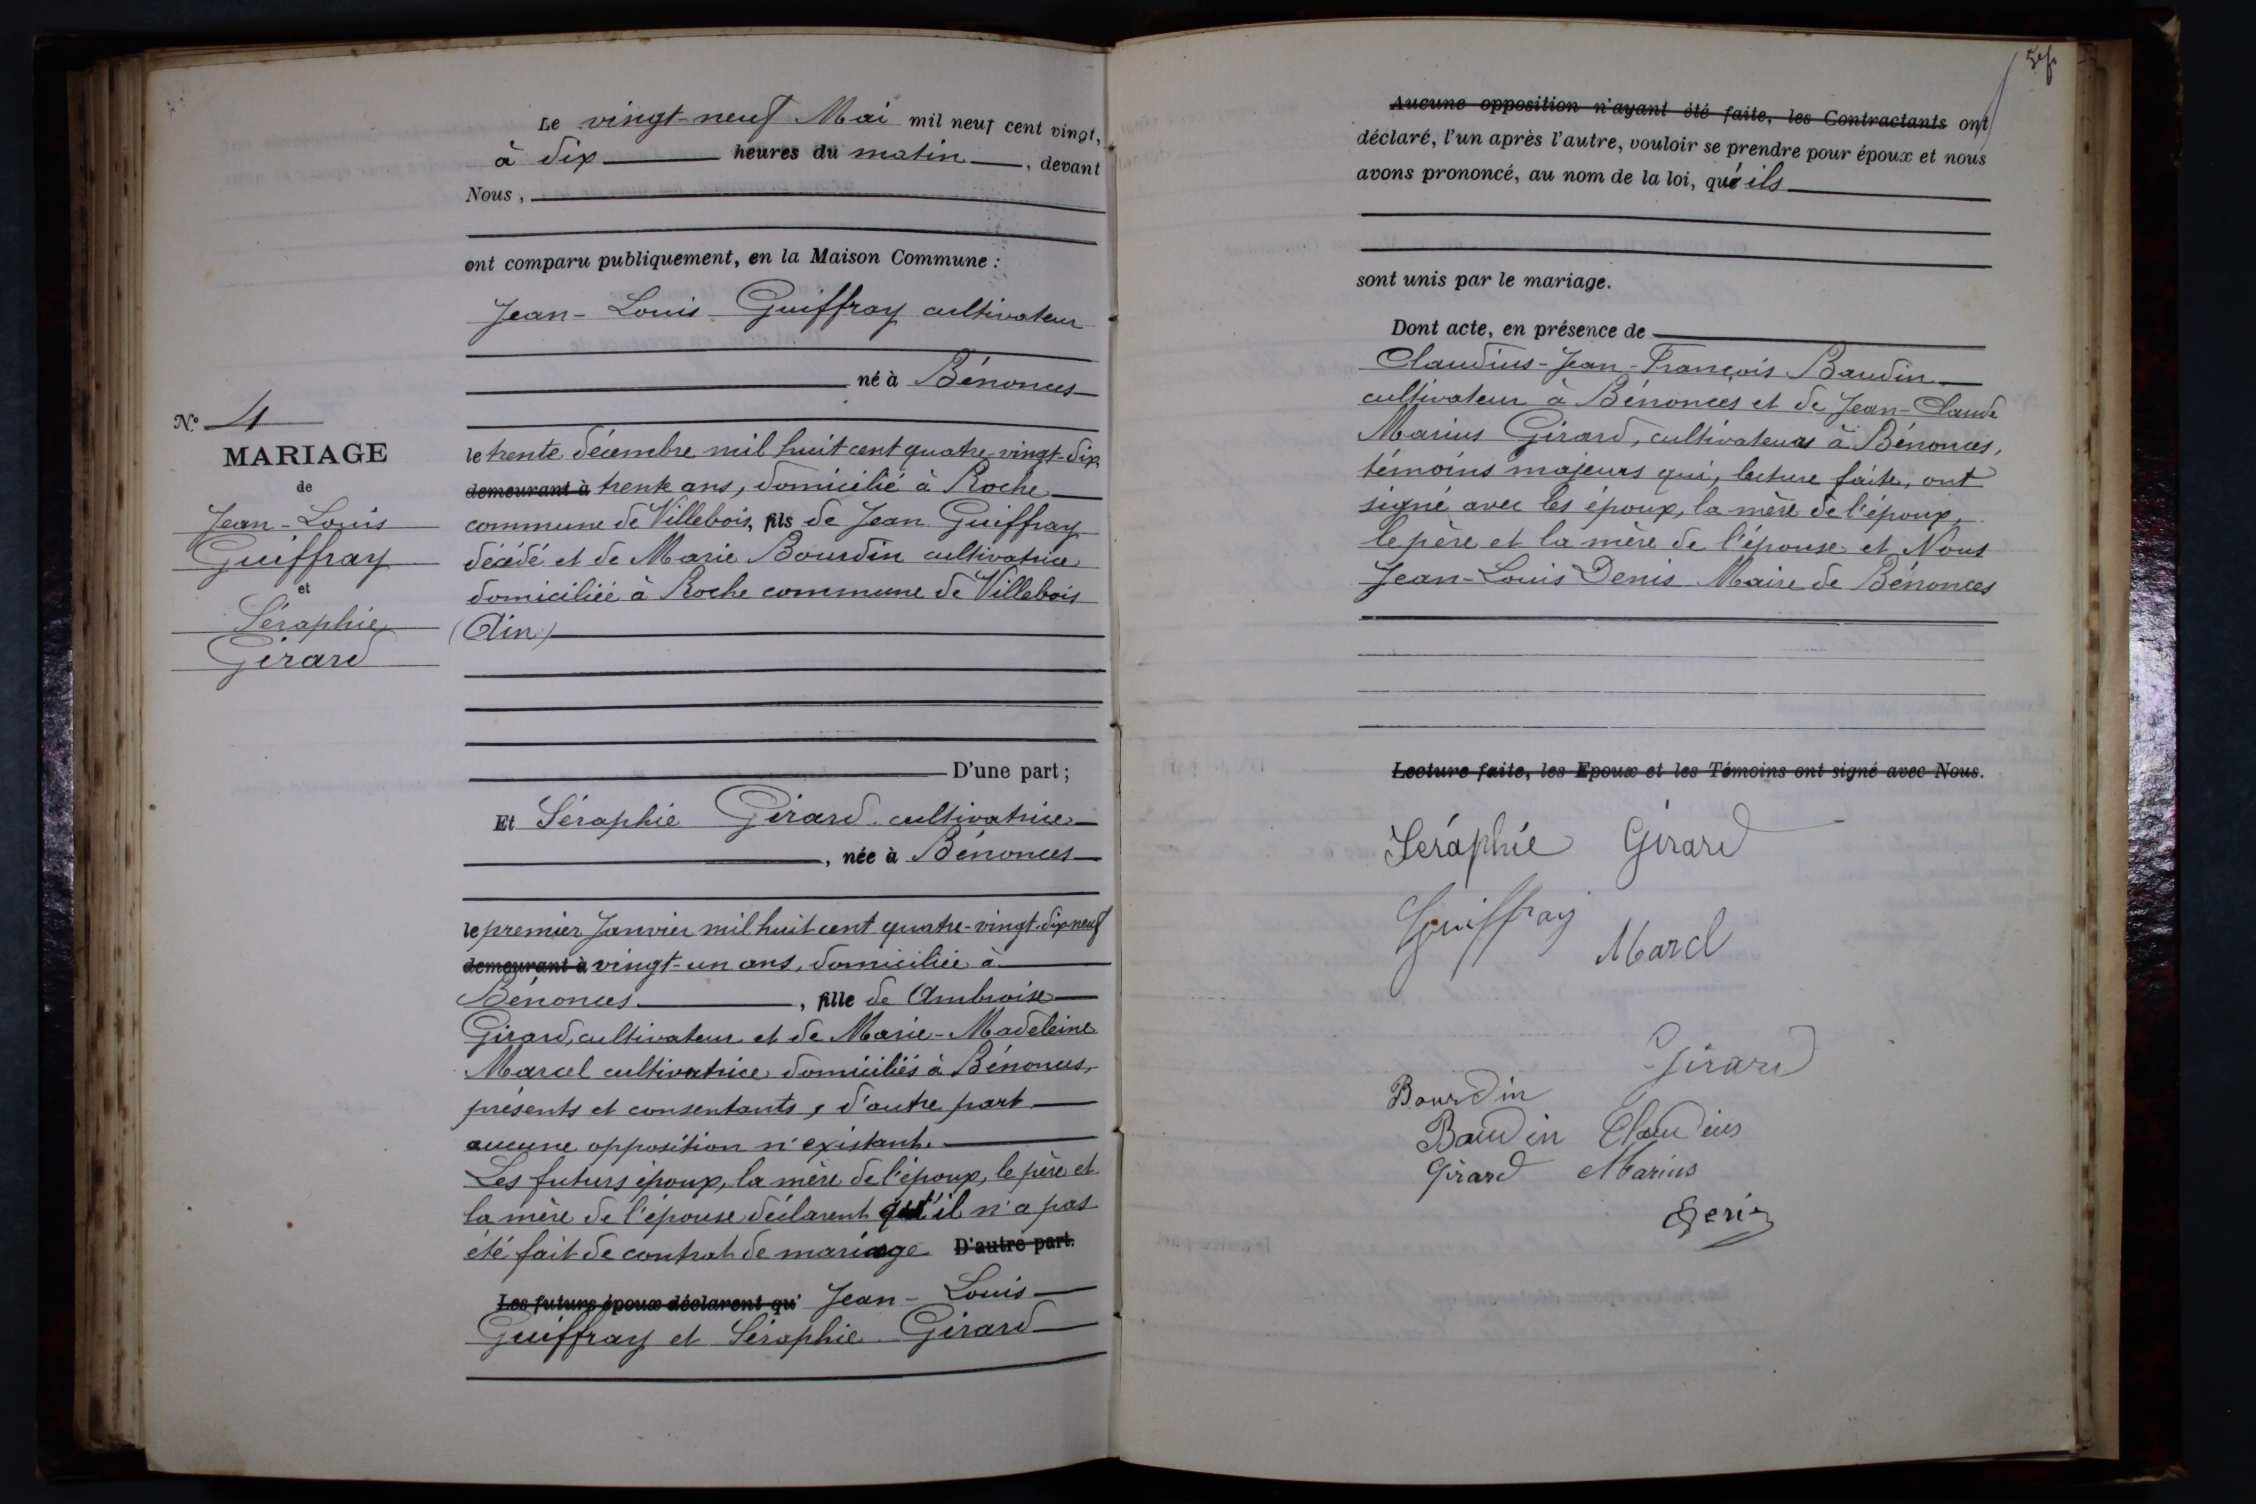 Le vingt-neuf Mai mil neuf cent vingt,
à dix heures du matin, devant
Nous,
ont comparu publiquement, en la Maison Commune :
Jean-Louis Guiffray cultivateur
né à Bénonces
N.º 4
MARIAGE
de
Jean-Louis
Guiffray
et
Séraphie
Girard
le trente décembre mil huit cent quatre-vingt-dix
demeurant à trente ans, domicilié à Roche
commune de Villebois, fils de Jean Guiffray
décédé et de Marie Bourdin cultivatrice
domiciliée à Roche commune de Villebois
(Ain)
D'une part ;
Et Séraphie Girard cultivatrice
, née à Bénonces
le premier Janvier mil huit cent quatre-vingt-dix neuf
demeurant à vingt-un ans, domiciliée à
Bénonces, fille de Ambroise
Girard, cultivateur et de Marie-Madeleine
Marcel cultivatrice domiciliés à Bénonces,
présents et consentants, d'autre part
aucune opposition n'existant.
Les futurs époux, la mère de l'époux, le père et
la mère de l'épouse déclarent qu'il n'a pas
été fait de contrat de mariage D'autre part.
Les futurs époux déclarent qu' Jean-Louis
Guiffray et Séraphie Girard
Aucune opposition n'ayant été faite, les Contractants ont
déclaré, l'un après l'autre, vouloir se prendre pour époux et nous
avons prononcé, au nom de la loi, qu'ils
sont unis par le mariage.
Dont acte, en présence de
Claudius-Jean-François Baudin
cultivateur à Bénonces et de Jean-Claude
Marius Girard, cultivateurs à Bénonces,
témoins majeurs qui, lecture faite, ont
signé avec les époux, la mère de l'époux,
le père et la mère de l'épouse et Nous
Jean-Louis Denis Maire de Bénonces
Lecture faite, les Epoux et les Témoins ont signé avec Nous.
Séraphie Girard
Guiffray
Marcl
Girard
Bourdin
Baudin Claudius
Girard Marius
Denis